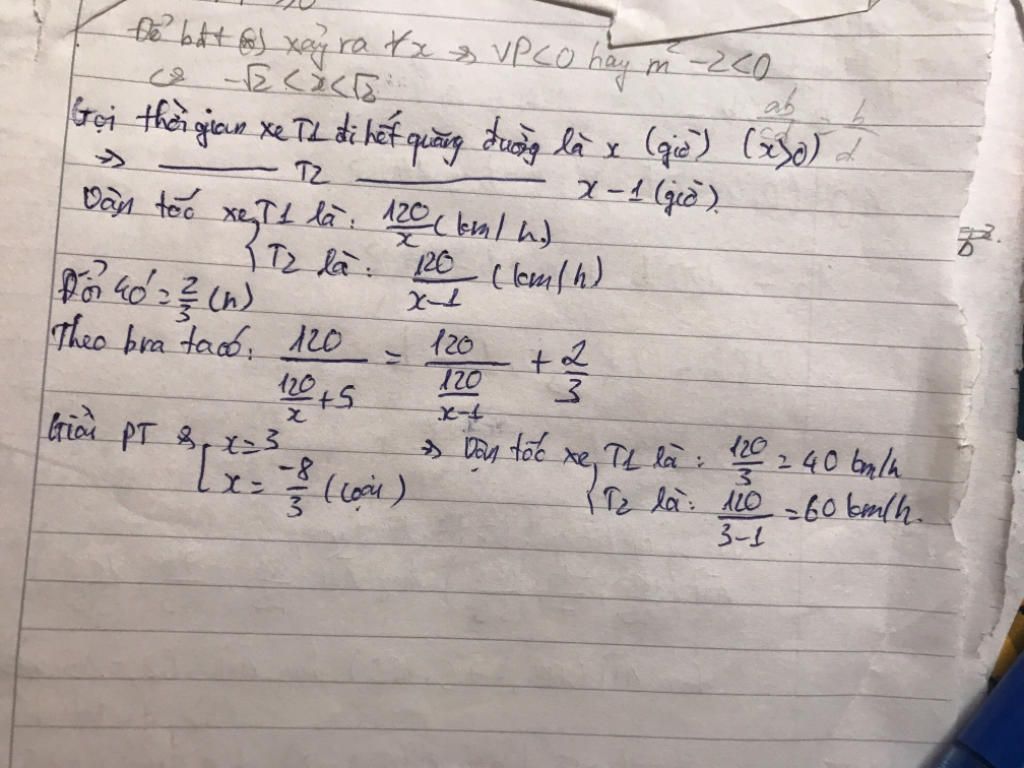 Để bđt (*) xảy ra ∀x => VP<0 hay m²-2<0
<=> -√2 < x < √2
Gọi thời gian xe T1 đi hết quãng đường là x (giờ) (x>0)
=> ——— T2 ——— x-1 (giờ).
Vận tốc xe T1 là: 120/x (km/h)
T2 là: 120/(x-1) (km/h)
Đổi 40' = 2/3 (h)
Theo bra ta có: 120/(120/x + 5) = 120/(120/(x-1)) + 2/3
Giải PT => [x=3
[x = -8/3 (loại)
=> Vận tốc xe T1 là: 120/3 = 40 km/h
T2 là: 120/(3-1) = 60 km/h.